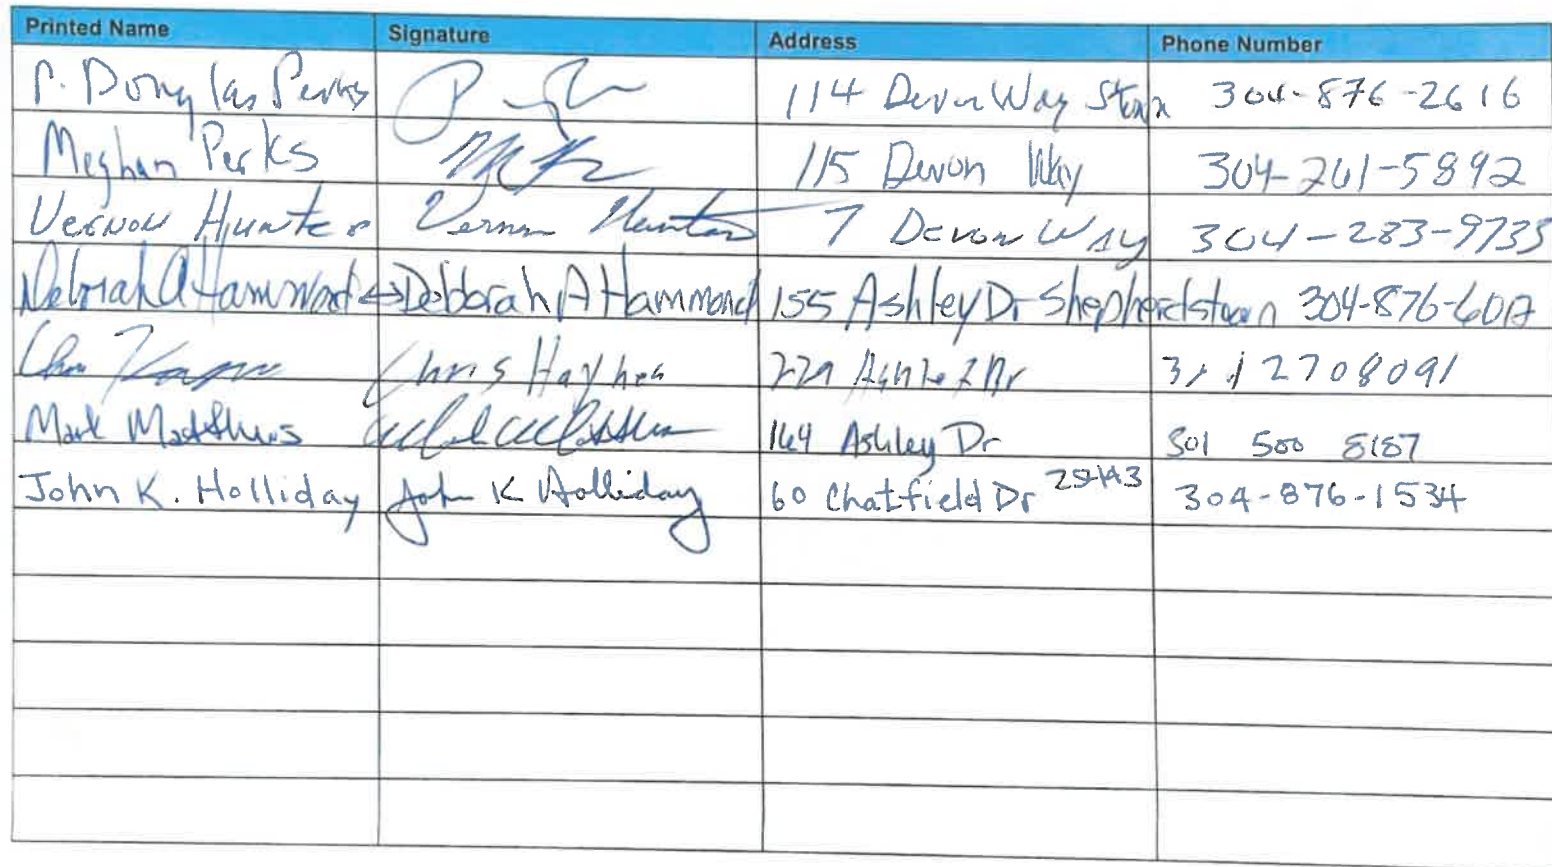 Printed Name Signature Address Phone Number
P. Douglas Perks 114 Devon Way 304-876-2616
Meghan Perks 115 Devon Way 304-261-5892
Vernon Hunter Vernon Hunter 7 Devon Way 304-283-9735
Deborah A Hammond ↔ Deborah A Hammond 155 Ashley Dr Shepherdstown 304-876-
Chris Haynes Dr 2708091
Mark Matthews 164 Ashley Dr 301 500 8187
John K. Holliday John K Holliday 60 Chatfield Dr 25443 304-876-1534